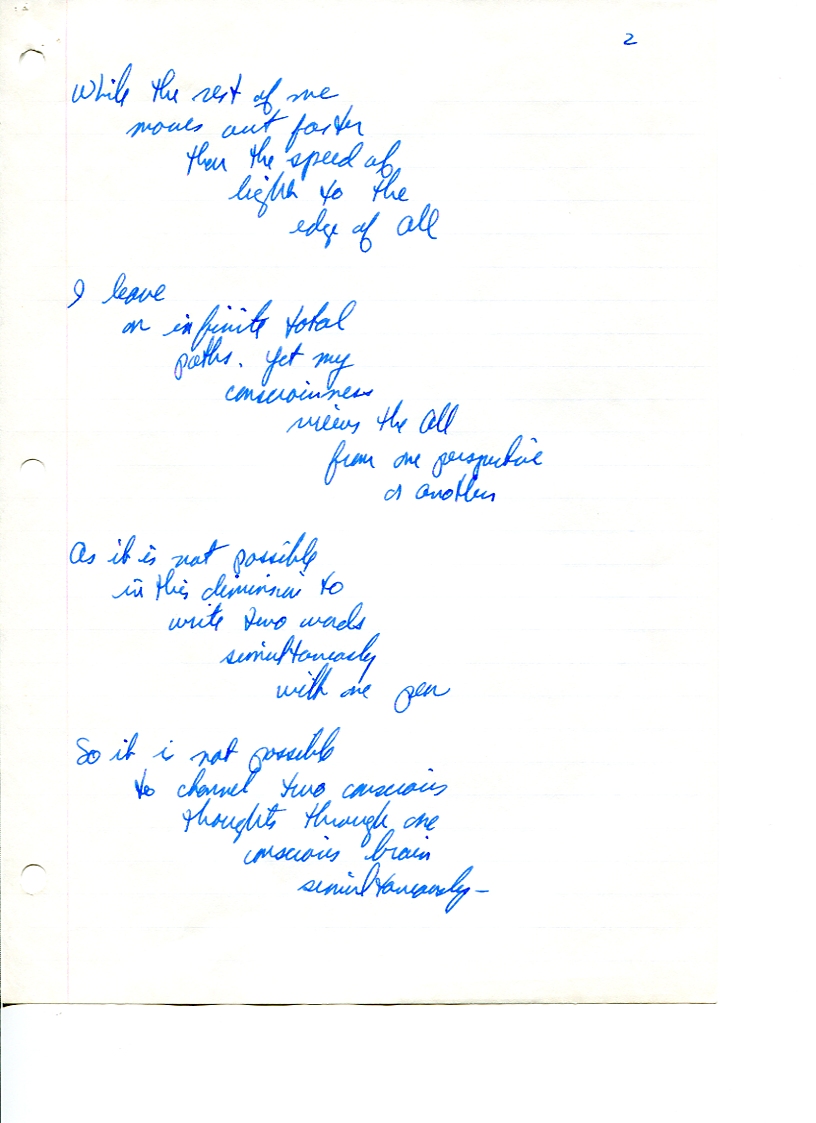 2
While the rest of me
moves out faster
than the speed of
light to the
edge of all
I leave
on infinite total
paths. Yet my
consciousness
views the all
from one perspective
or another
As it is not possible
in this dimension to
write two words
simultaneously
with one pen
So it is not possible
to channel two conscious
thoughts through one
conscious brain
simultaneously—